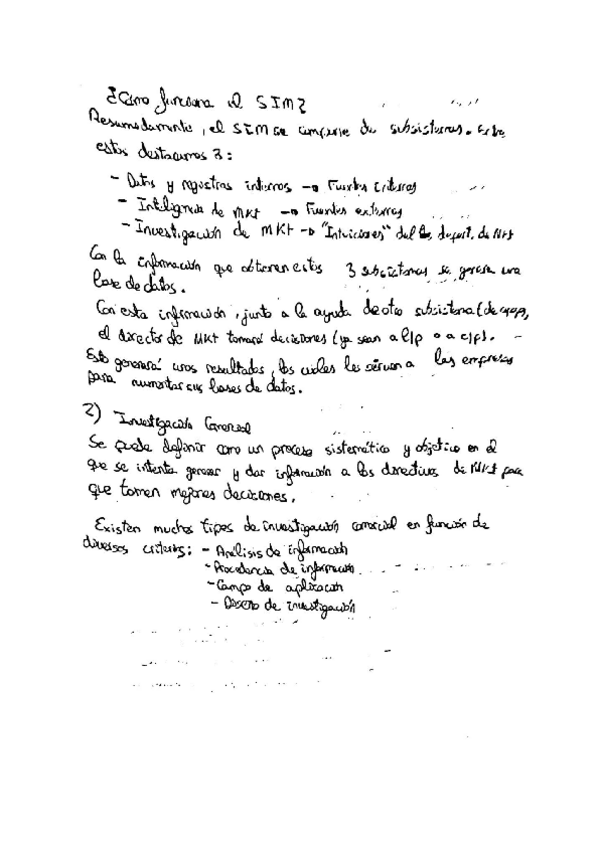 ¿Cómo funciona el SIM?
Resumidamente, el SIM se compone de subsistemas. Entre
estos destacamos 3:
- Datos y registros internos → Fuentes internas
- Inteligencia de MKT → Fuentes externas
- Investigación de MKT → "Intuiciones" del depart. de MKT
Con la información que obtienen estos 3 subsistemas se genera una
base de datos.
Con esta información, junto a la ayuda de otro subsistema (de apoyo),
el director de MKT tomará decisiones (ya sean a l/p o a c/p).
Esto generará unos resultados, los cuales les sirven a las empresas
para aumentar sus bases de datos.
2) Investigación Comercial
Se puede definir como un proceso sistemático y objetivo en el
que se intenta generar y dar información a los directivos de MKT para
que tomen mejores decisiones.
Existen muchos tipos de investigación comercial en función de
diversos criterios: - Análisis de información
- Procedencia de información
- Campo de aplicación
- Diseño de investigación